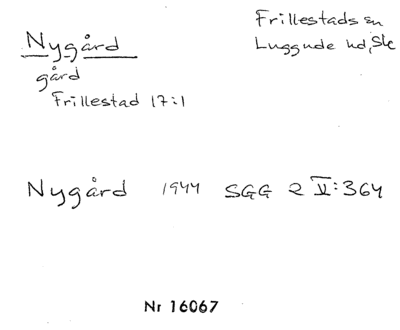 Nygård
gård
Frillestad 17:1
Frillestads sn
Luggude hd, Sk
Nygård 1944 SGG 2 V:364
Nr 16067